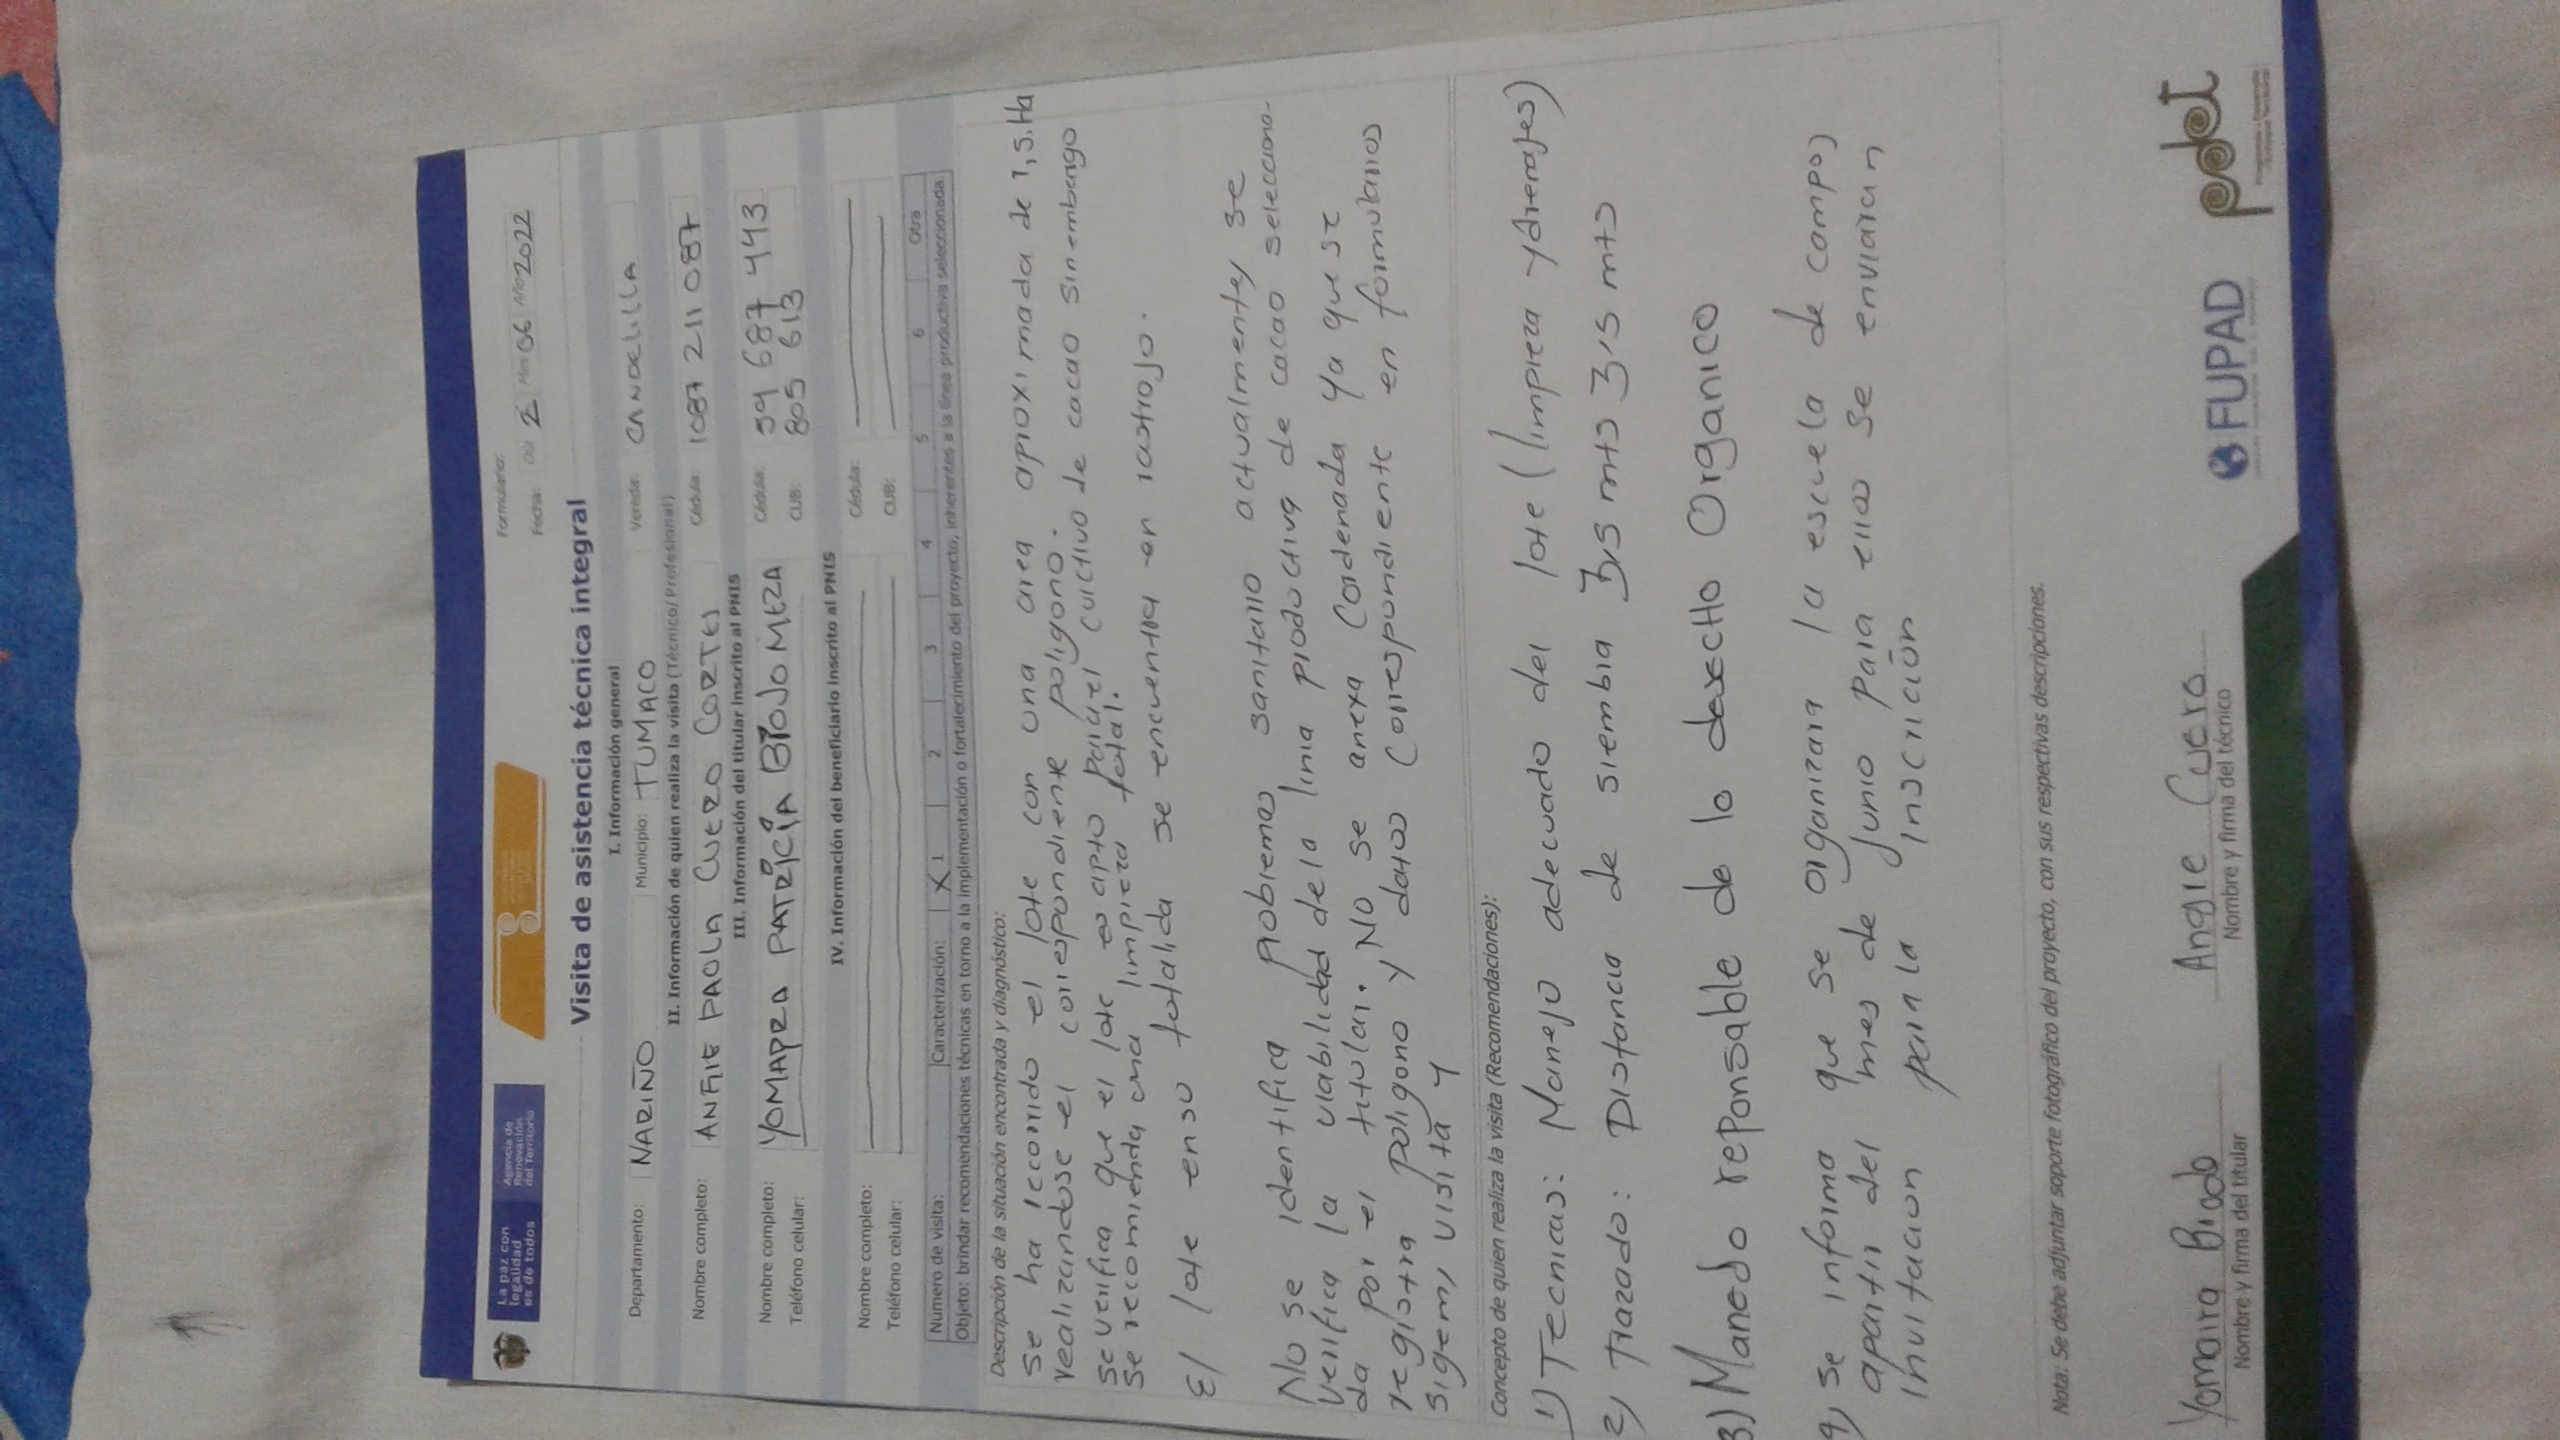 La paz con legalidad es de todos
Agencia de Renovación del Territorio
Formulario:
Fecha: Día 2 Mes 06 Año 2022
Visita de asistencia técnica integral
I. Información general
Departamento: NARIÑO Municipio: TUMACO Vereda: CANDELILLA
II. Información de quien realiza la visita (Técnico/Profesional)
Nombre completo: ANGIE PAOLA CUERO CORTES Cédula: 1087 211 087
III. Información del titular inscrito al PNIS
Nombre completo: YOMAIRA PATRICIA BIOJO MEZA Cédula: 59 687 443
Teléfono celular: CUB: 805 613
IV. Información del beneficiario inscrito al PNIS
Nombre completo: Cédula:
Teléfono celular: CUB:
Número de visita: Caracterización: X 1 2 3 4 5 6 Otra
Objeto: brindar recomendaciones técnicas en torno a la implementación o fortalecimiento del proyecto, inherentes a la línea productiva seleccionada.
Descripción de la situación encontrada y diagnóstico:
se ha recorrido el lote con una area aproximada de 1,5.Ha
realizandose el correspondiente poligono.
se verifica que el lote es apto para el cultivo de cacao sinembargo
se recomienda una limpieza total.
El lote ensu totalida se encuentra en rastrojo.
No se identifica problemas sanitario actualmente, se
verifica la viabilidad dela linia productiva de cacao selecciona-
da por el titular. NO se anexa Cordenada ya que se
registra poligono y datos Correspondiente en formularios
sigem, visita 4
Concepto de quien realiza la visita (Recomendaciones):
1) Tecnicas: Manejo adecuado del lote (limpieza y drenajes)
2) Trazado: Distancia de siembra 3,5 mts 3,5 mts
3) Manedo reponsable de lo desecHo Organico
4) se informa que se organizara la escuela de campo,
apartir del mes de Junio para ellos se enviaran
Invitacion para la Inscrición
Nota: Se debe adjuntar soporte fotográfico del proyecto, con sus respectivas descripciones.
Yomaira Biojo Angie Cuero
Nombre y firma del titular Nombre y firma del técnico
FUPAD
pdet